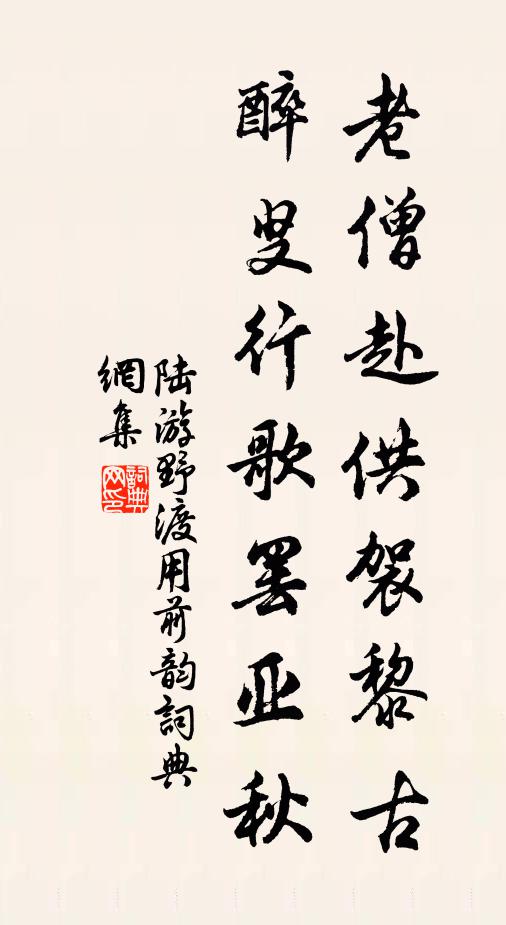 老僧赴供袈黎古
醉叟行歌罢亚秋
陆游野渡用前韵詞典
網集
詞典
网印